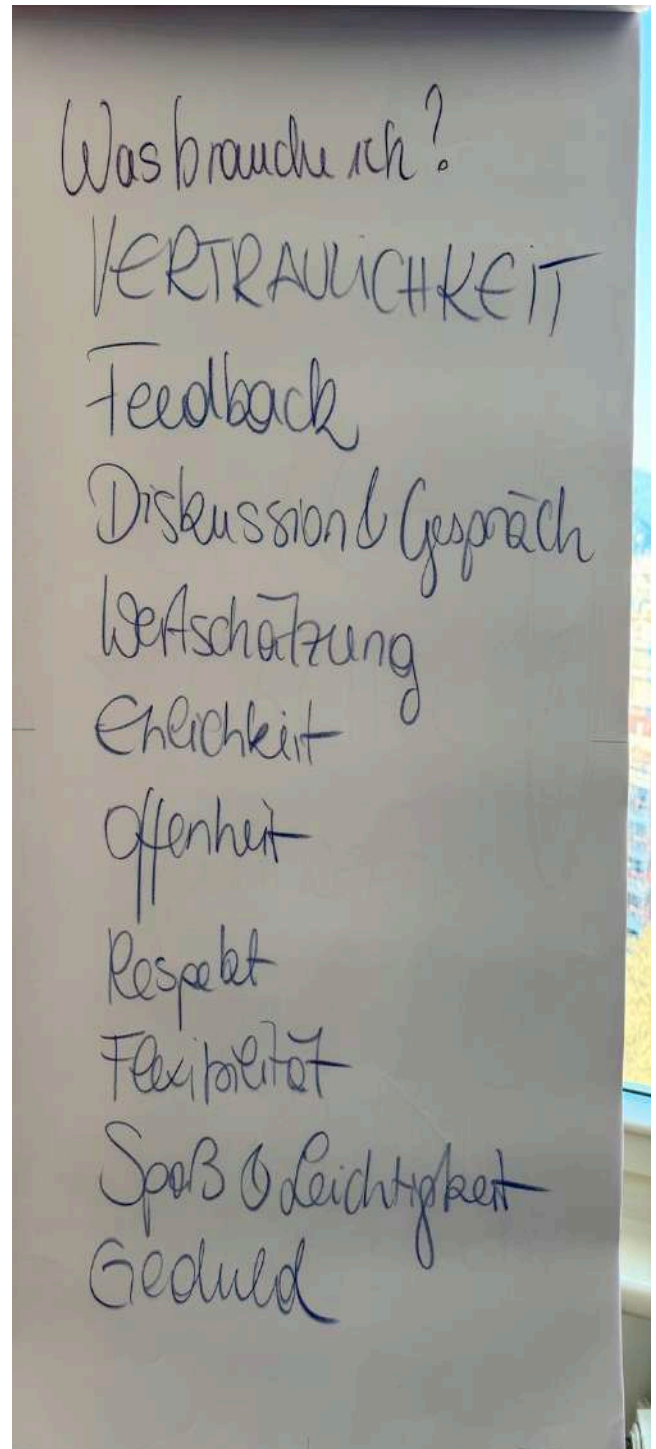 Was brauche ich?
VERTRAULICHKEIT
Feedback
Diskussion & Gespräch
Wertschätzung
Ehrlichkeit
Offenheit
Respekt
Flexibilität
Spaß & Leichtigkeit
Geduld